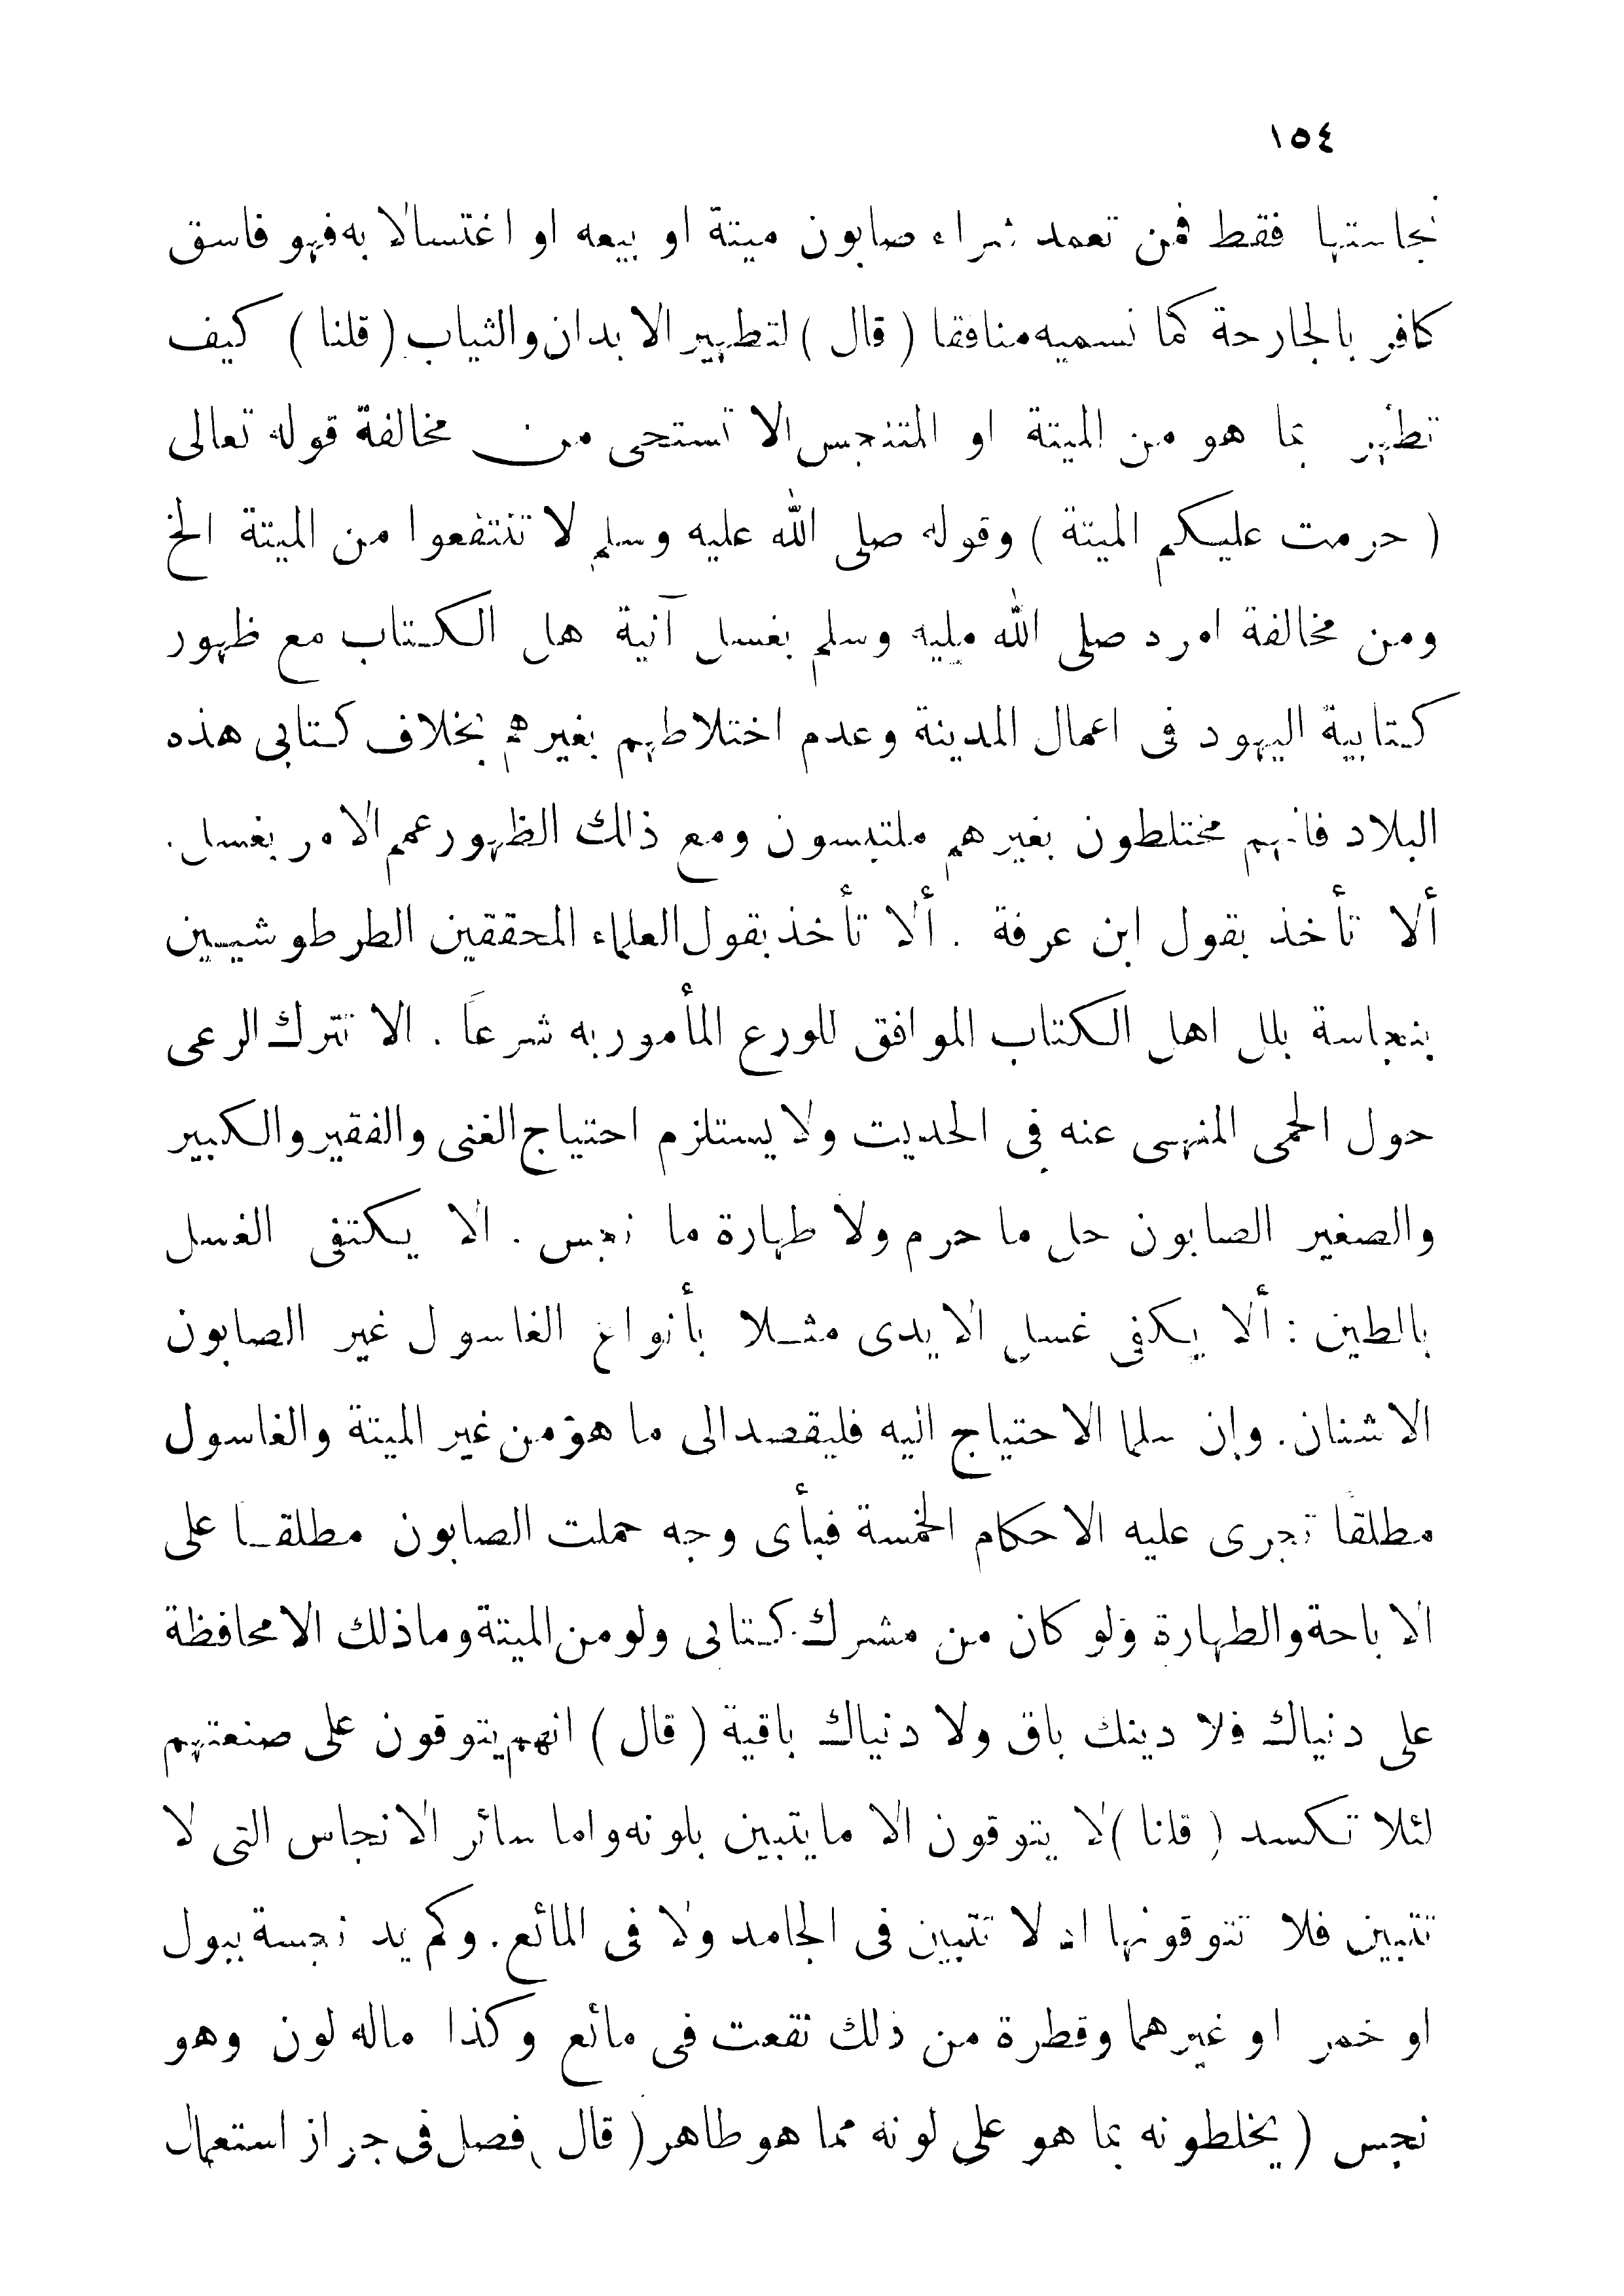 ١٥٤
نجاستها فقط فمن تعمد شراء صابون ميتة او بيعه او اغتسالا به فهو فاسق
كافر بالجارحة كما نسميه منافقا ( قال ) لتطهير الابدان والثياب ( قلنا ) كيف
تطهر بما هو من الميتة او المتنجس الا تستحى من مخالفة قوله تعالى
( حرمت عليكم الميتة ) وقوله صلى الله عليه وسلم لا تنتفعوا من الميتة الخ
ومن مخالفة امره صلى الله عليه وسلم بغسل آنية هل الكتاب مع ظهور
كتابية اليهود فى اعمال المدينة وعدم اختلاطهم بغيرهم بخلاف كتابى هذه
البلاد فانهم مختلطون بغيرهم ملتبسون ومع ذلك الظهور عمم الامر بغسل.
ألا تأخذ بقول ابن عرفة . ألا تأخذ بقول العلماء المحققين الطرطوشيين
بنجاسة بلل اهل الكتاب الموافق للورع المأمور به شرعا . الا تترك الرعى
حول الحمى المنهى عنه فى الحديث ولا يستلزم احتياج الغنى والفقير والكبير
والصغير الصابون حل ما حرم ولا طهارة ما نجس . الا يكتفى الغسل
بالطين : ألا يكفى غسل الايدى مثلا بأنواع الغاسول غير الصابون
الاشنان. وإن سلما الاحتياج اليه فليقصد الى ما هو من غير الميتة والغاسول
مطلقا تجرى عليه الاحكام الخمسة فبأى وجه حملت الصابون مطلقا على
الاباحة والطهارة ولو كان من مشرك كتابى ولو من الميتة وما ذلك الا محافظة
على دنياك فلا دينك باق ولا دنياك باقية ( قال ) انهم يتوقون على صنعتهم
لئلا تكسد ( قلنا ) لا يتوقون الا ما يتبين بلونه واما سائر الانجاس التى لا
تتبين فلا تتوقونها اذ لا تتبين فى الجامد ولا فى المائع. وكم يد نجسة ببول
او خمر او غيرهما وقطرة من ذلك نقعت فى مائع وكذا ماله لون وهو
نجس ( يخلطونه بما هو على لونه مما هو طاهر ( قال ) فصل فى جواز استعمال